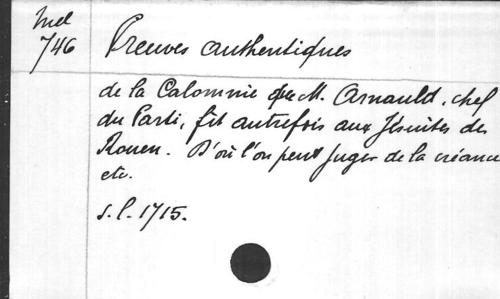 Mel
746
Preuves authentiques
de la Calomnie que M. Arnauld, chef
du Parti, fit autrefois aux Jésuites de
Rouen. D'où l'on peut juger de la créance
etc.
s.l. 1715.